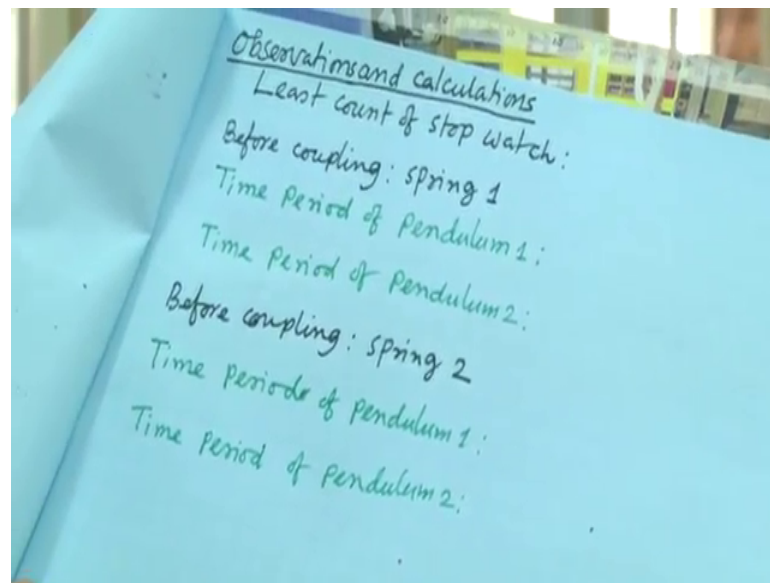 Observations and calculations
Least count of stop watch:
Before coupling: spring 1
Time Period of Pendulum 1:
Time Period of Pendulum 2:
Before coupling: spring 2
Time Periods of Pendulum 1:
Time Period of Pendulum 2: